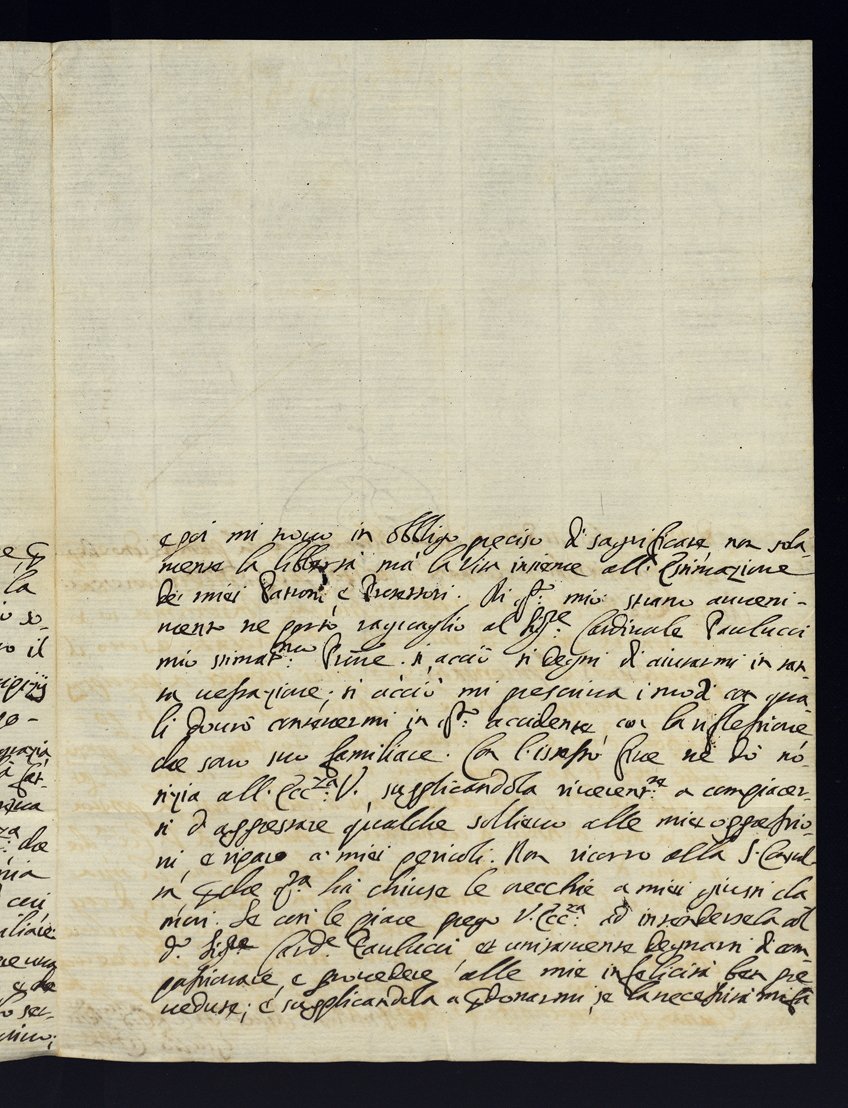 e poi mi trovo in obbligo preciso di sagrificare non sola
mente la libbertà mà la vita insieme all'estimazione
de miei Padroni e Protettori. Di q.to mio strano avveni-
mento ne porto ragguaglio al Sig.re Cardinale Paulucci
mio stimat.mo Prñe. sì, acciò si degni di aiutarmi in tan-
ta vessazione; sì acciò mi prescriva i modi con qua
li dourò contenermi in q.to accidente, con la riflessione
che sono suo familiare. Con l'istesso fine nè dò no-
tizia all'Ecc.za V. supplicandola riverent.te a compiacer-
si d'apprestare qualche sollievo alle mie oppressio-
ni, e riparo a miei pericoli. Non ricorro alla S. Consul-
ta che q.ta hà chiuse le orecchie a miei giusti cla
mori. Se così le piace prego V. Ecc.za ad intendersela col
d.o Sig.re Card.e Paulucci, et unitamente degnarsi di com
passionare, e provedere alle mie infelicità ben pre
vedute; e supplicandola a perdonarmi, se la necessità mi fà
e
la
so-
il
go-
che